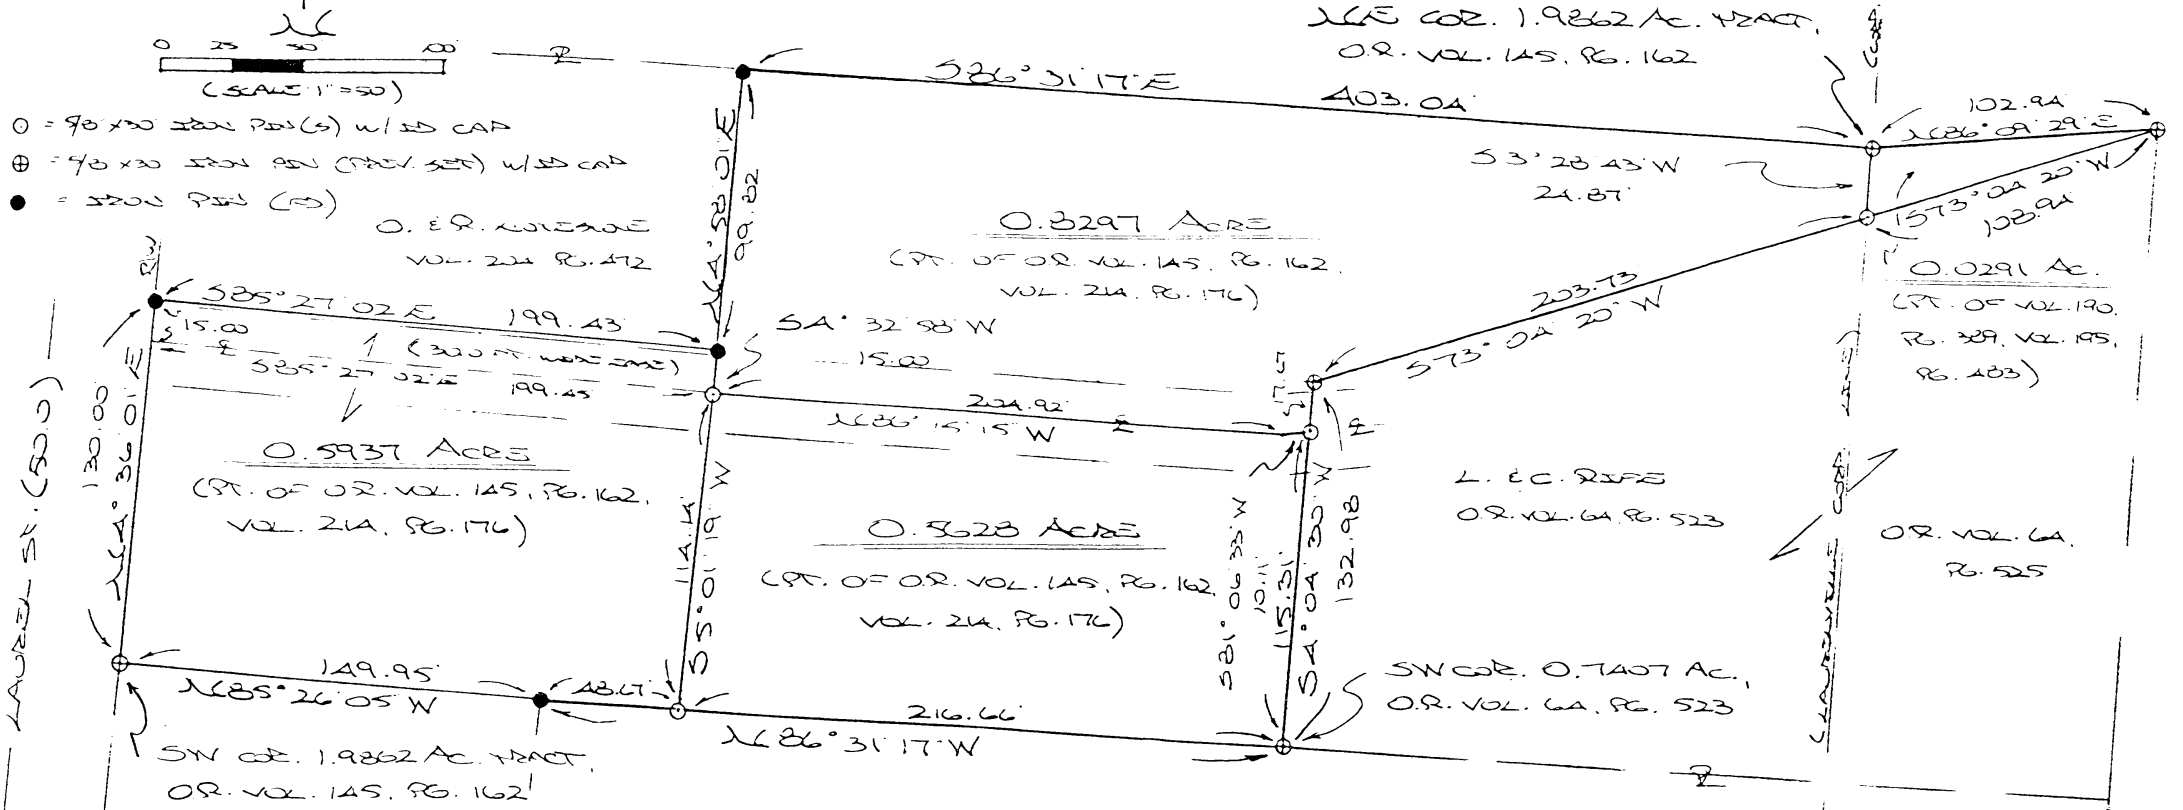 N
0 25 50 100
(SCALE 1"=50')
= 5/8 X30 IRON PIN(S) W/ID CAP
= 5/8 X30 IRON PIN (PREV. SET) W/ID CAP
= IRON PIN (FD)
NE COR. 1.9862 AC. TRACT,
O.R. VOL. 145, PG. 162
S86° 31' 17" E
403.04'
102.94
N86° 09' 29" E
S73° 04' 20" W
108.94
S3° 28' 43" W
24.87'
O. & R.
VOL. 204 PG. 472
N4° 58' 01" E
99.82
0.8297 ACRE
(PT. OF O.R. VOL. 145, PG. 162,
VOL. 214, PG. 176)
203.73
S73° 04' 20" W
0.0291 AC.
(PT. OF VOL. 190,
PG. 389, VOL. 195,
PG. 483)
R/W
S85° 27' 02" E 199.43'
15.00
S85° 27' 02" E 199.45
S4° 32' 58" W
15.00
204.92'
N86° 15' 15" W
17.67
LAUREL ST. (50.0')
130.00
N4° 36' 01" E
0.5937 ACRE
(PT. OF O.R. VOL. 145, PG. 162,
VOL. 214, PG. 176)
114.14
S5° 01' 19" W
0.5628 ACRE
(PT. OF O.R. VOL. 145, PG. 162,
VOL. 214, PG. 176)
S81° 06' 33" W
10.11'
115.31'
S4° 04' 30" W
132.98
L. & C. RIFE
O.R. VOL. 64, PG. 523
O.R. VOL. 64,
PG. 525
CORP. LINE)
149.95'
N85° 26' 05" W
43.67'
216.66'
N86° 31' 17" W
SW COR. 0.7407 AC.,
O.R. VOL. 64, PG. 523
SW COR. 1.9862 AC. TRACT,
O.R. VOL. 145, PG. 162